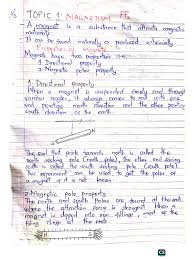 TOPIC 1: MAGNETISM
- A magnet is a substance that attracts magnetic
materials
- It can be found naturally or produced artificially
Properties of Magnets
Magnets have two properties i.e.
1. Directional property
2. Magnetic poles property
1. Directional property
When a magnet is suspended freely and through
various angles, it always comes to rest with one
end pointing north direction and the other points
south direction as the earth
N
The end that points towards north is called the
north seeking pole (north pole), the other end facing
south is called the south seeking pole (south pole).
This experiment can be used to get the poles of
a magnet if it is not known
2. Magnetic poles property
The north and south poles are found at the ends
where the attraction force is strongest. When a
magnet is dipped into iron fillings, most of the
filings cling at the ends